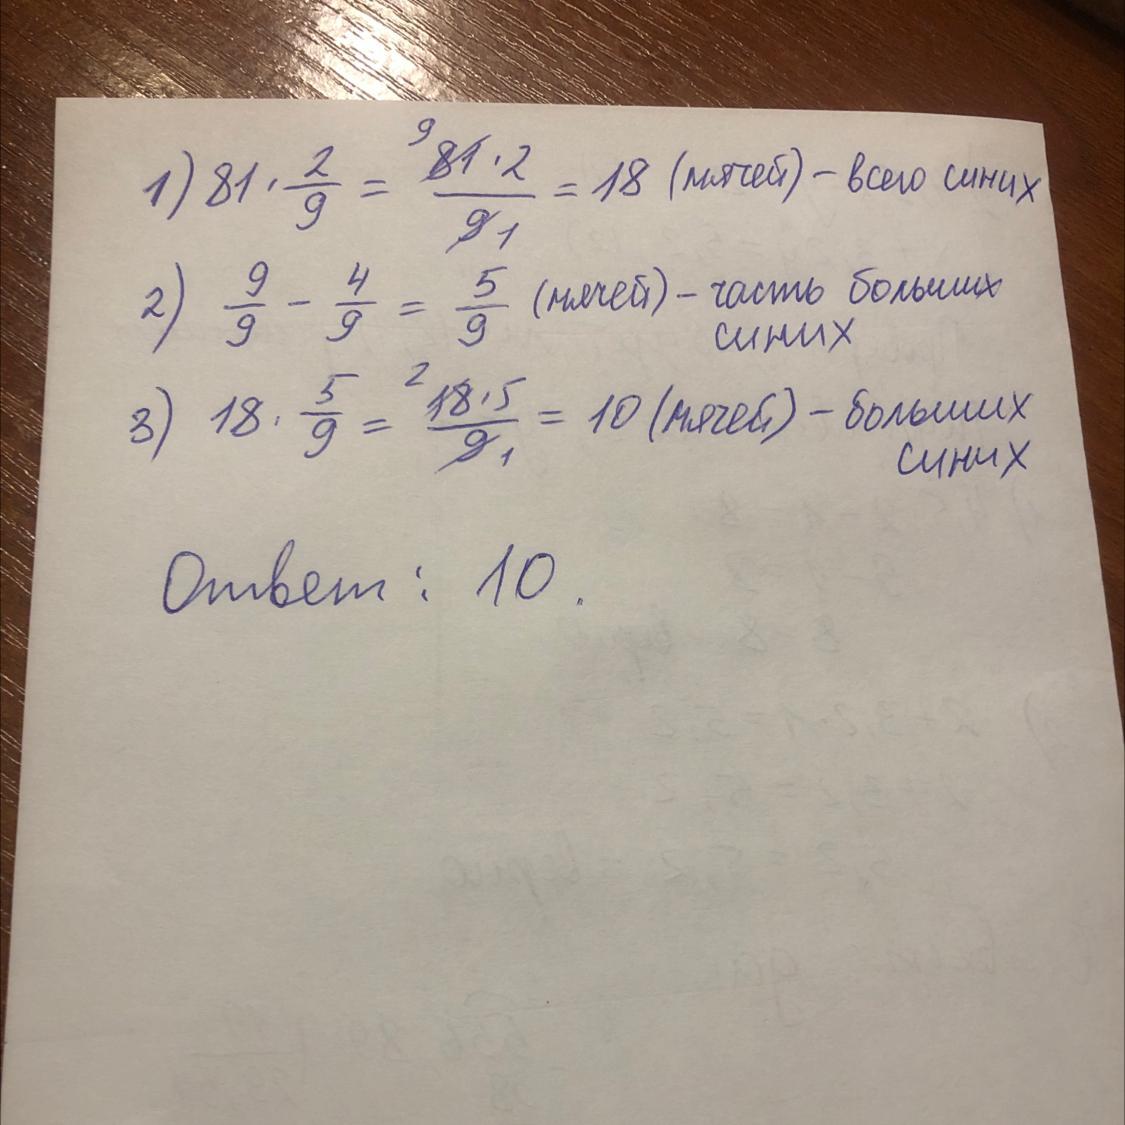 1) 81 · 2/9 = 9 81·2 / 9 1 = 18 (мячей) – всего синих
2) 9/9 – 4/9 = 5/9 (мячей) – часть больших
синих
3) 18 · 5/9 = 2 18·5 / 9 1 = 10 (мячей) – больших
синих
Ответ: 10.